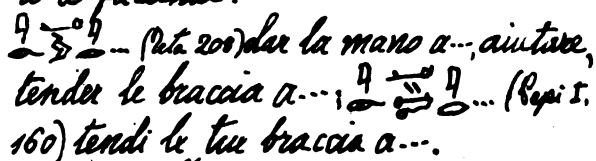 ... (Teta 208) dar la mano a..., aiutare,
tender le braccia a...; ... (Pepi I,
160) tendi le tue braccia a....